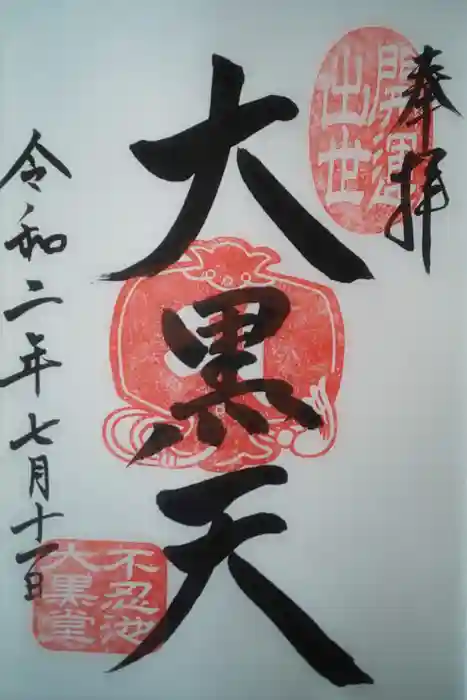 奉拝
開運
出世
大黒天
不忍池
大黒堂
令和二年七月十一日